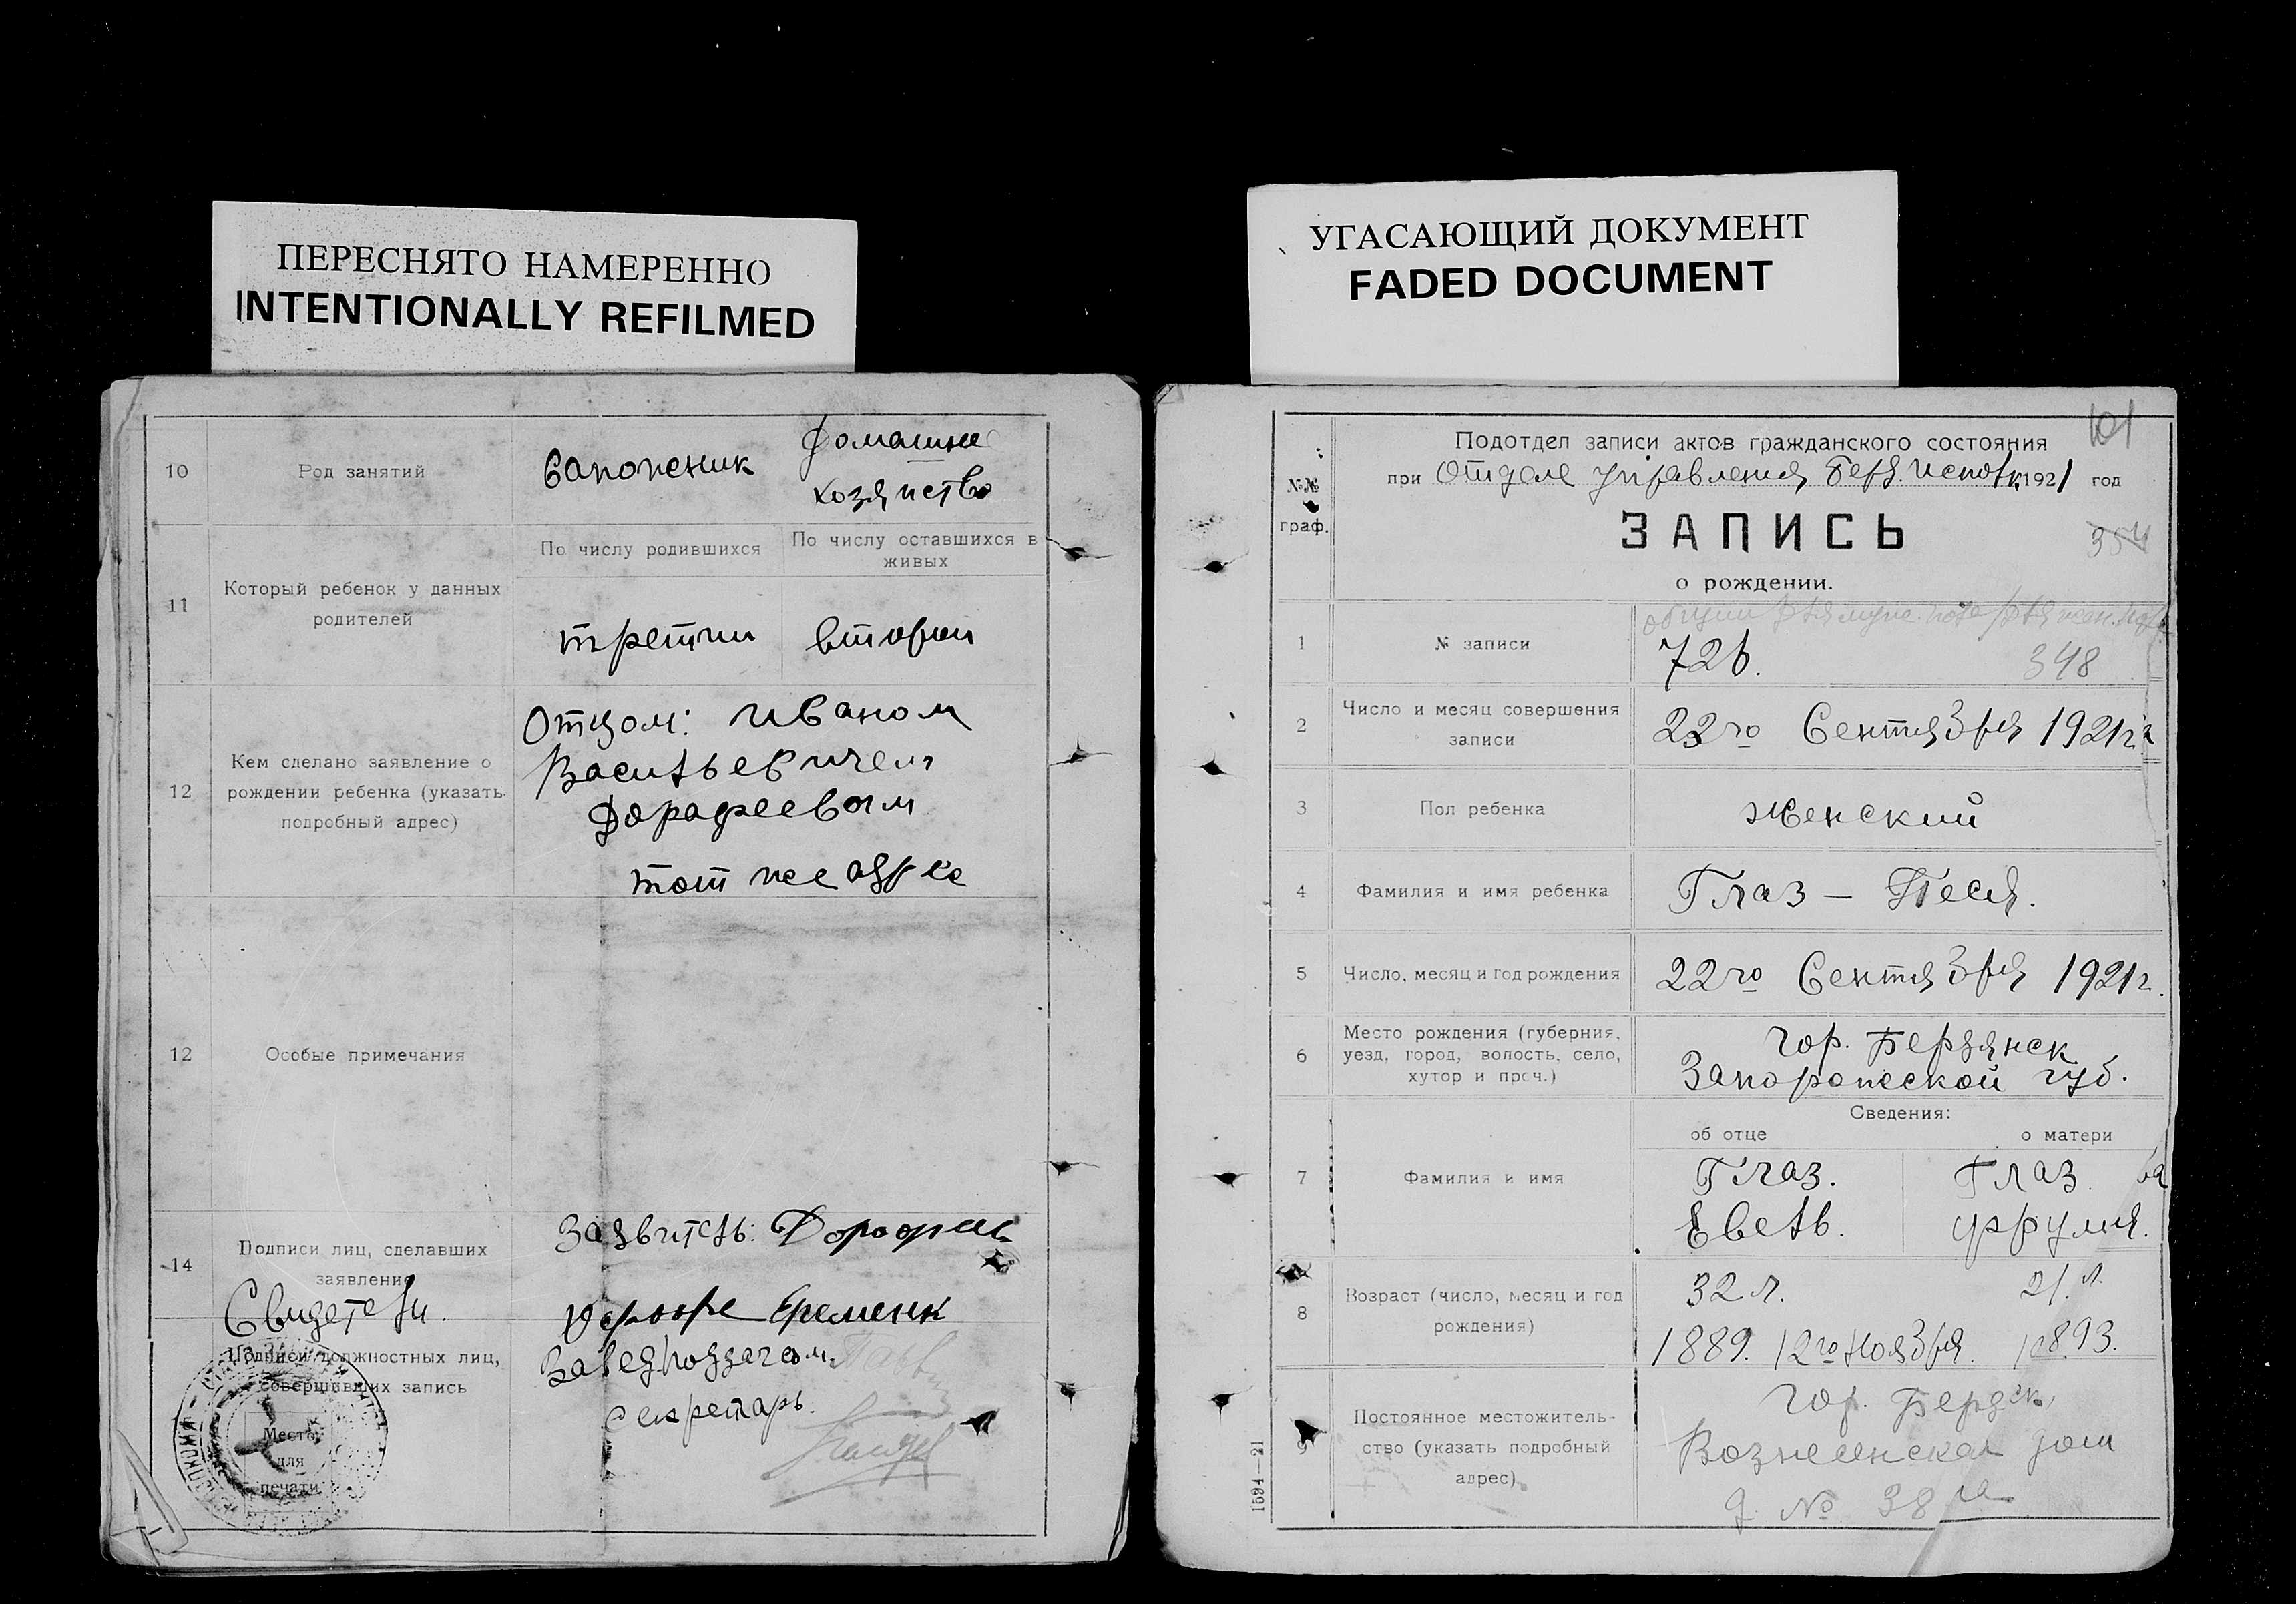 ПЕРЕСНЯТО НАМЕРЕННО
INTENTIONALLY REFILMED
10
Род занятий
Сапожник
Домашне
хозяйство
11
Который ребенок у данных
родителей
По числу родившихся
По числу оставшихся в
живых
третий
второй
12
Кем сделано заявление о
рождении ребенка (указать
подробный адрес)
Отцом: Иваном
Васильевичем
Дорафеевым
тот же адрес
12
Особые примечания
14
Подписи лиц, сделавших
заявление
Заявитель: Дорофеев
Свидетели.
Еременк
Подписи должностных лиц,
совершивших запись
Завед подзагсом
Секретарь.
Место
для
печати
УГАСАЮЩИЙ ДОКУМЕНТ
FADED DOCUMENT
101
№№
граф.
Подотдел записи актов гражданского состояния
при Отделе Управления Берд. Исполк. 1921 год
ЗАПИСЬ
354
о рождении.
1
№ записи
726.
348
2
Число и месяц совершения
записи
22го Сентября 1921 г.
3
Пол ребенка
Женский
4
Фамилия и имя ребенка
Глаз — Песя.
5
Число, месяц и год рождения
22го Сентября 1921 г.
6
Место рождения (губерния,
уезд, город, волость, село,
хутор и проч.)
гор. Бердянск
Запорожской губ.
Сведения:
об отце
о матери
7
Фамилия и имя
Глаз.
Евель.
Глаз
Фрума.
8
Возраст (число, месяц и год
рождения)
32 л.
21 л.
1889. 12го Ноября.
1893.
9
Постоянное местожитель-
ство (указать подробный
адрес)
гор. Бердск,
Вознесенская дом
д. № 38
1594—21